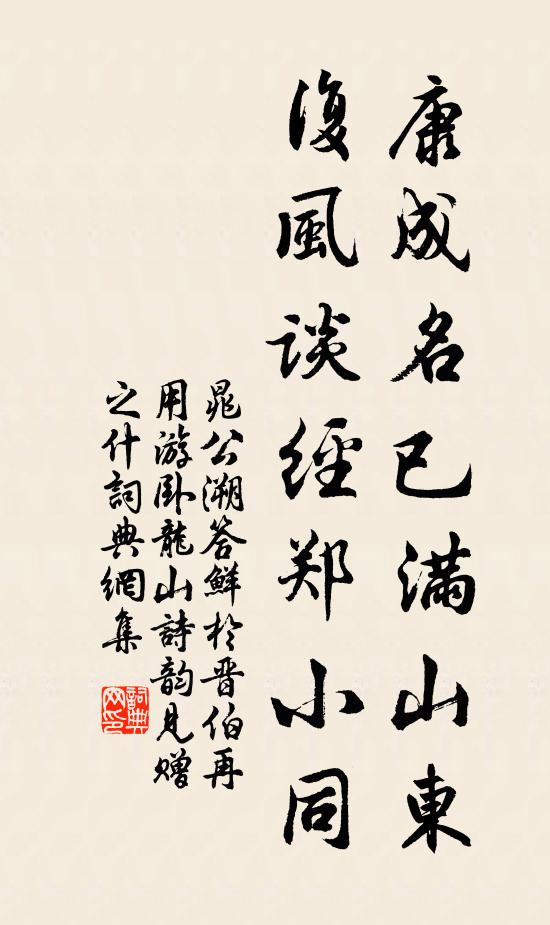 康成名已满山東
復風谈經郑小同
晁公溯答鮮於晋伯再
用游卧龍山詩韵見赠
之什詞典網集
詞典网印